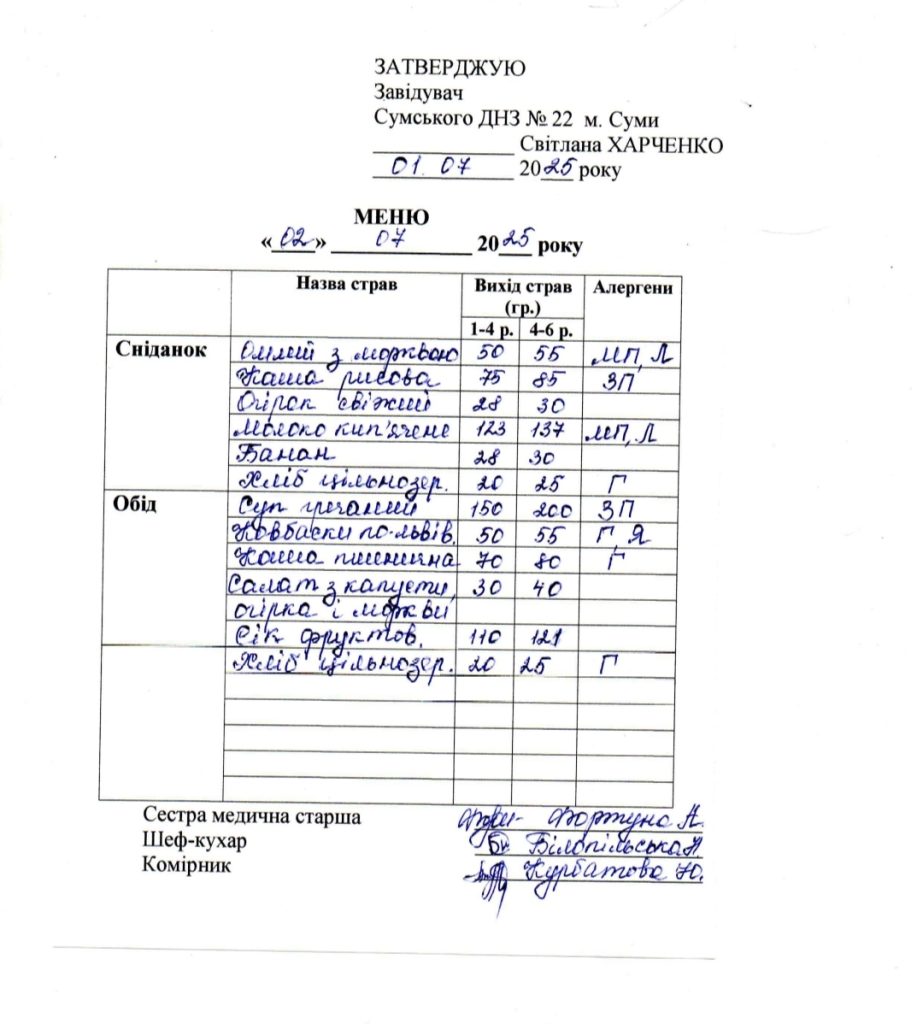 ЗАТВЕРДЖУЮ
Завідувач
Сумського ДНЗ № 22 м. Суми
Світлана ХАРЧЕНКО
01. 07 2025 року
МЕНЮ
«02» 07 2025 року
Назва страв Вихід страв (гр.) Алергени
1-4 р. 4-6 р.
Сніданок Омлет з морквою 50 55 МП, Л
Каша рисова 75 85 ЗП
Огірок свіжий 28 30
Молоко кип'ячене 123 137 МП, Л
Банан 28 30
Хліб цільнозер. 20 25 Г
Обід Суп гречаний 150 200 ЗП
Ковбаски по-львів. 50 55 Г, Я
Каша пшенична 70 80 Г
Салат з капусти, 30 40
огірка і моркви
Сік фруктов. 110 121
Хліб цільнозер. 20 25 Г
Сестра медична старша Фортуна А.
Шеф-кухар Білопільська Н
Комірник Курбатова Ю.